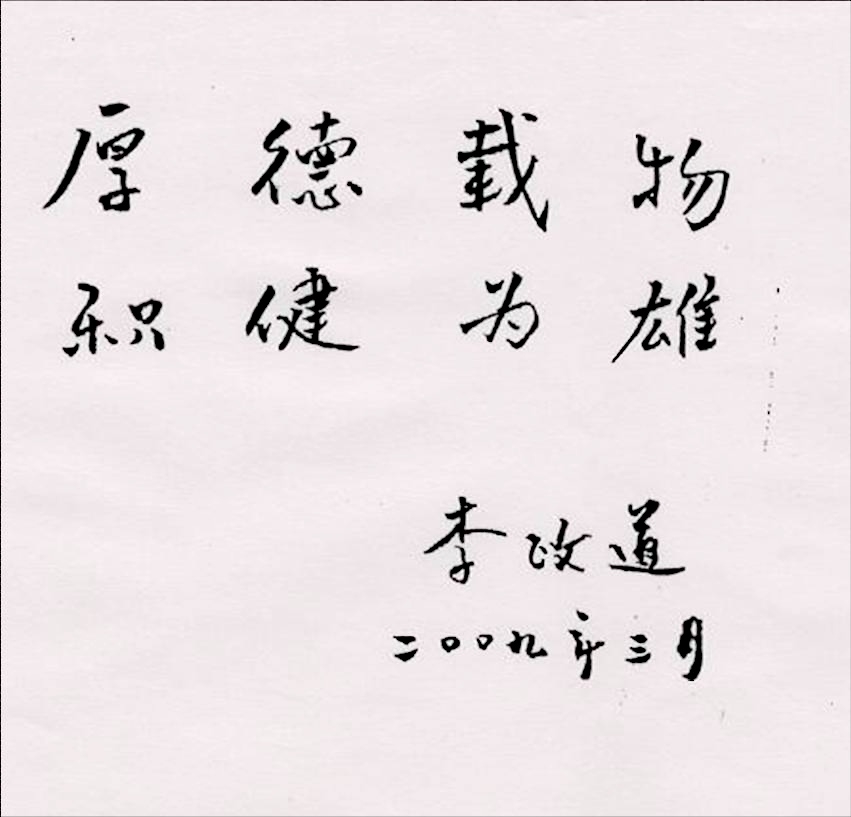 厚德载物
积健为雄
李政道
二〇〇九年三月